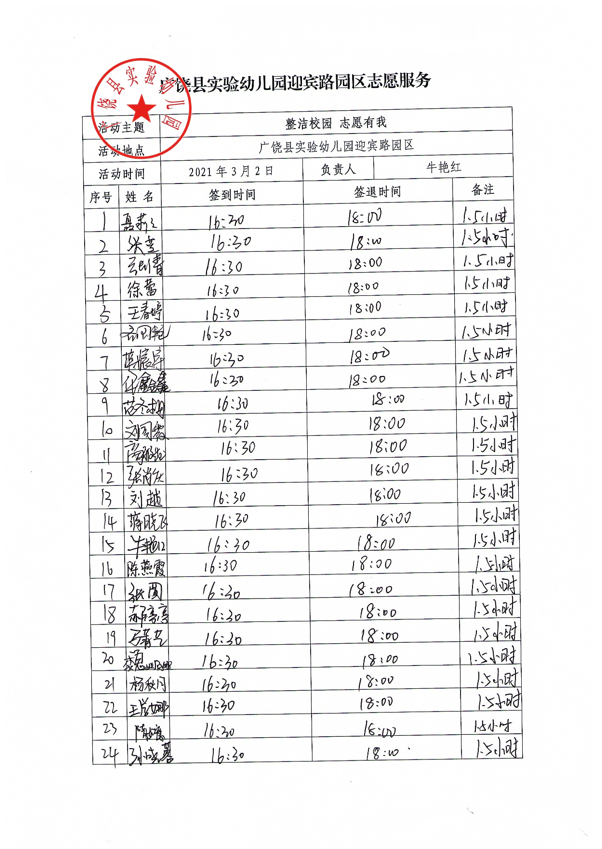 广饶县实验幼儿园迎宾路园区志愿服务
广饶县实验幼儿园
活动主题 整洁校园 志愿有我
活动地点 广饶县实验幼儿园迎宾路园区
活动时间 2021年3月2日 负责人 牛艳红
序号 姓名 签到时间 签退时间 备注
1 16:30 18:00 1.5小时
2 16:30 18:00 1.5小时
3 16:30 18:00 1.5小时
4 徐蕾 16:30 18:00 1.5小时
5 王春婷 16:30 18:00 1.5小时
6 16:30 18:00 1.5小时
7 16:30 18:00 1.5小时
8 16:30 18:00 1.5小时
9 16:30 18:00 1.5小时
10 16:30 18:00 1.5小时
11 16:30 18:00 1.5小时
12 16:30 18:00 1.5小时
13 刘越 16:30 18:00 1.5小时
14 蒋晓飞 16:30 18:00 1.5小时
15 牛艳红 16:30 18:00 1.5小时
16 陈燕霞 16:30 18:00 1.5小时
17 16:30 18:00 1.5小时
18 16:30 18:00 1.5小时
19 16:30 18:00 1.5小时
20 16:30 18:00 1.5小时
21 杨秋月 16:30 18:00 1.5小时
22 16:30 18:00 1.5小时
23 16:30 18:00 1.5小时
24 16:30 18:00 1.5小时